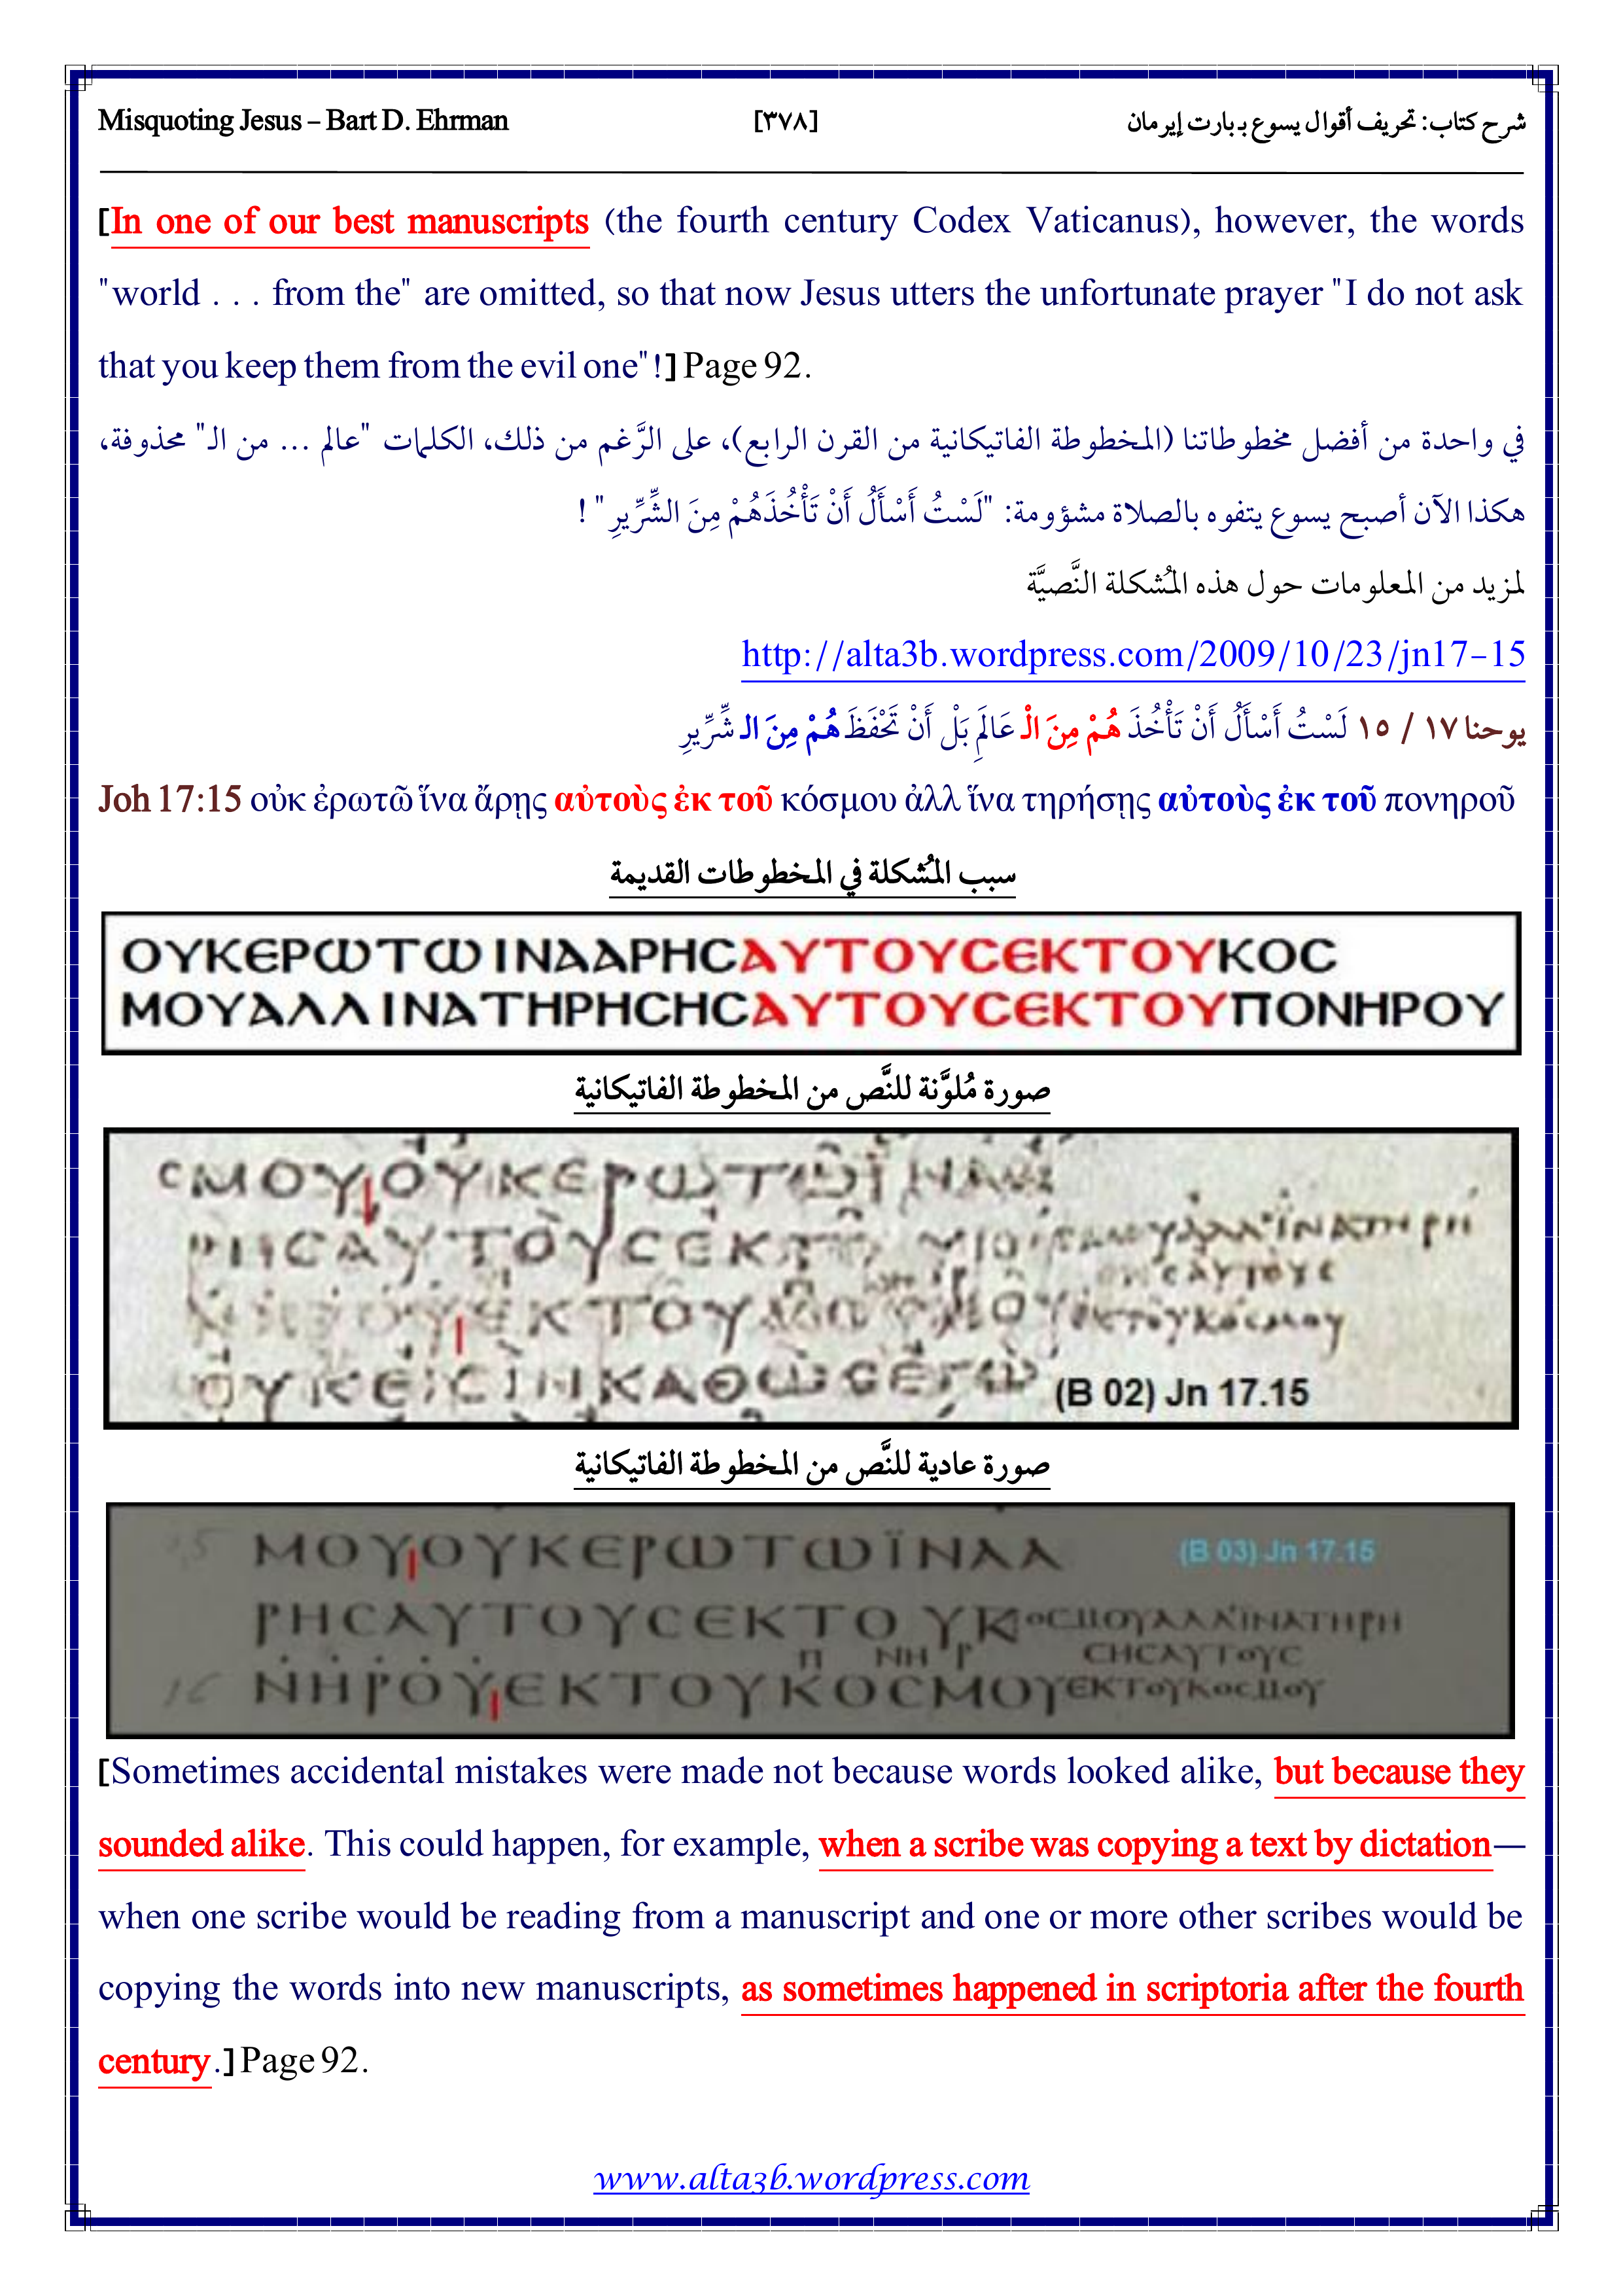 Misquoting Jesus – Bart D. Ehrman [٣٧٨] شرح كتاب: تحريف أقوال يسوع بـ بارت إيرمان
[In one of our best manuscripts (the fourth century Codex Vaticanus), however, the words
"world . . . from the" are omitted, so that now Jesus utters the unfortunate prayer "I do not ask
that you keep them from the evil one"!] Page 92.
في واحدة من أفضل مخطوطاتنا (المخطوطة الفاتيكانية من القرن الرابع)، على الرَّغم من ذلك، الكلمات "عالم ... من الـ" محذوفة،
هكذا الآن أصبح يسوع يتفوه بالصلاة مشؤومة: "لَسْتُ أَسْأَلُ أَنْ تَأْخُذَهُمْ مِنَ الشِّرِّيرِ" !
لمزيد من المعلومات حول هذه المُشكلة النَّصيَّة
http://alta3b.wordpress.com/2009/10/23/jn17-15
يوحنا ١٧ / ١٥ لَسْتُ أَسْأَلُ أَنْ تَأْخُذَ هُمْ مِنَ الْ عَالَمِ بَلْ أَنْ تَحْفَظَ هُمْ مِنَ الـ شِّرِّيرِ
Joh 17:15 οὐκ ἐρωτῶ ἵνα ἄρῃς αὐτοὺς ἐκ τοῦ κόσμου ἀλλ ἵνα τηρήσῃς αὐτοὺς ἐκ τοῦ πονηροῦ
سبب المُشكلة في المخطوطات القديمة
ΟΥΚΕΡΩΤΩΙΝΑΑΡΗϹΑΥΤΟΥϹΕΚΤΟΥΚΟϹ
ΜΟΥΑΛΛΙΝΑΤΗΡΗϹΗϹΑΥΤΟΥϹΕΚΤΟΥΠΟΝΗΡΟΥ
صورة مُلوَّنة للنَّص من المخطوطة الفاتيكانية
ϹΜΟΥΟΥΚΕΡΩΤΩΪΝΑΑ
ΡΗϹΑΥΤΟΥϹΕΚΤ
ΕΚΤΟΥ
ΟΥΚΕΙϹΙΝΚΑΘΩϹΕΓΩ
(B 02) Jn 17.15
صورة عادية للنَّص من المخطوطة الفاتيكانية
ΜΟΥΟΥΚΕΡΩΤΩΪΝΑΑ (B 03) Jn 17.15
ΡΗϹΑΥΤΟΥϹΕΚΤΟΥΚΟϹΜΟΥΑΛΛΪΝΑΤΗΡΗ
Π ΝΗ Ρ ϹΗϹΑΥΤΟΥϹ
ΝΗΡΟΥΕΚΤΟΥΚΟϹΜΟΥΕΚΤΟΥΚΟϹΜΟΥ
[Sometimes accidental mistakes were made not because words looked alike, but because they
sounded alike. This could happen, for example, when a scribe was copying a text by dictation—
when one scribe would be reading from a manuscript and one or more other scribes would be
copying the words into new manuscripts, as sometimes happened in scriptoria after the fourth
century.] Page 92.
www.alta3b.wordpress.com